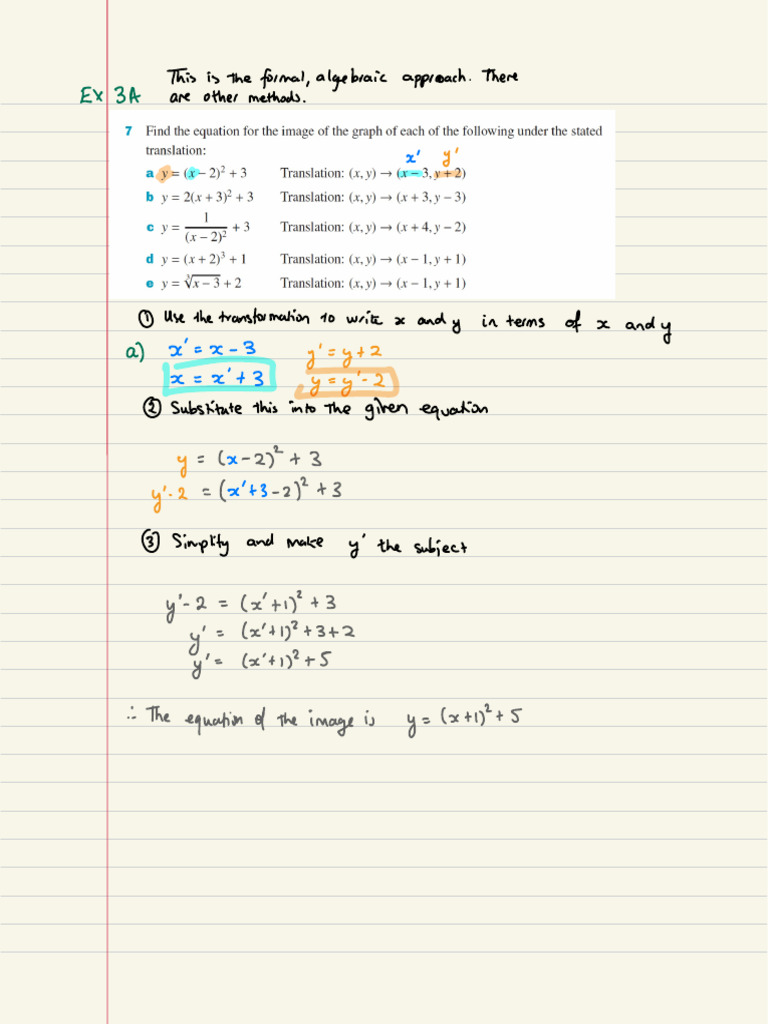 This is the formal, algebraic approach. There
Ex 3A are other methods.
7 Find the equation for the image of the graph of each of the following under the stated
translation:
x' y'
a y = (x − 2)² + 3 Translation: (x, y) → (x − 3, y + 2)
b y = 2(x + 3)² + 3 Translation: (x, y) → (x + 3, y − 3)
c y = 1/(x − 2)² + 3 Translation: (x, y) → (x + 4, y − 2)
d y = (x + 2)³ + 1 Translation: (x, y) → (x − 1, y + 1)
e y = ∛(x − 3) + 2 Translation: (x, y) → (x − 1, y + 1)
① Use the transformation to write x and y in terms of x and y
a) x' = x − 3 y' = y + 2
x = x' + 3 y = y' − 2
② Substitute this into the given equation
y = (x − 2)² + 3
y' − 2 = (x' + 3 − 2)² + 3
③ Simplify and make y' the subject
y' − 2 = (x' + 1)² + 3
y' = (x' + 1)² + 3 + 2
y' = (x' + 1)² + 5
∴ The equation of the image is y = (x + 1)² + 5